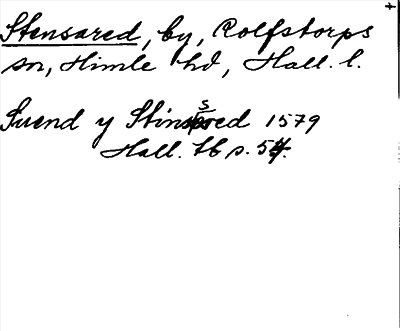 Stensared, by, Rolfstorps
sn, Himle hd, Hall. l.
Suend y Stinsered 1579
Hall. tb s. 54.